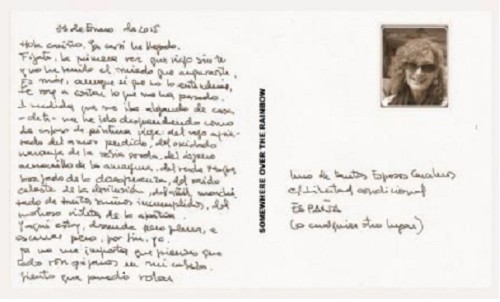 de Enero de 2015
Hola cariño, ya casi he llegado.
Fíjate, la primera vez que viajo sin ti
y no he tenido el miedo que auguraste.
Es más, aunque sé que no lo entenderías,
te voy a contar lo que me ha pasado.
A medida que me iba alejando de casa
-de ti- me he ido desprendiendo como
de capas de pintura vieja: del rojo
del amor perdido, del oxidado
naranja de la rabia sorda, del
amarillo de la amargura, del verde
de la desesperanza, del ácido
celeste de la desilusión, del añil
de tantos sueños incumplidos, del
mohoso violeta de la apatía.
Y aquí estoy, desnuda pero plena,
pero, por fin, yo.
Ya no me importa que pienses que
todo son pájaros en mi cabeza.
Siento que puedo volar
SOMEWHERE OVER THE RAINBOW
Uno de tantos Esposos
c/Libertad condicional
ESPAÑA
(o cualquier otro lugar)